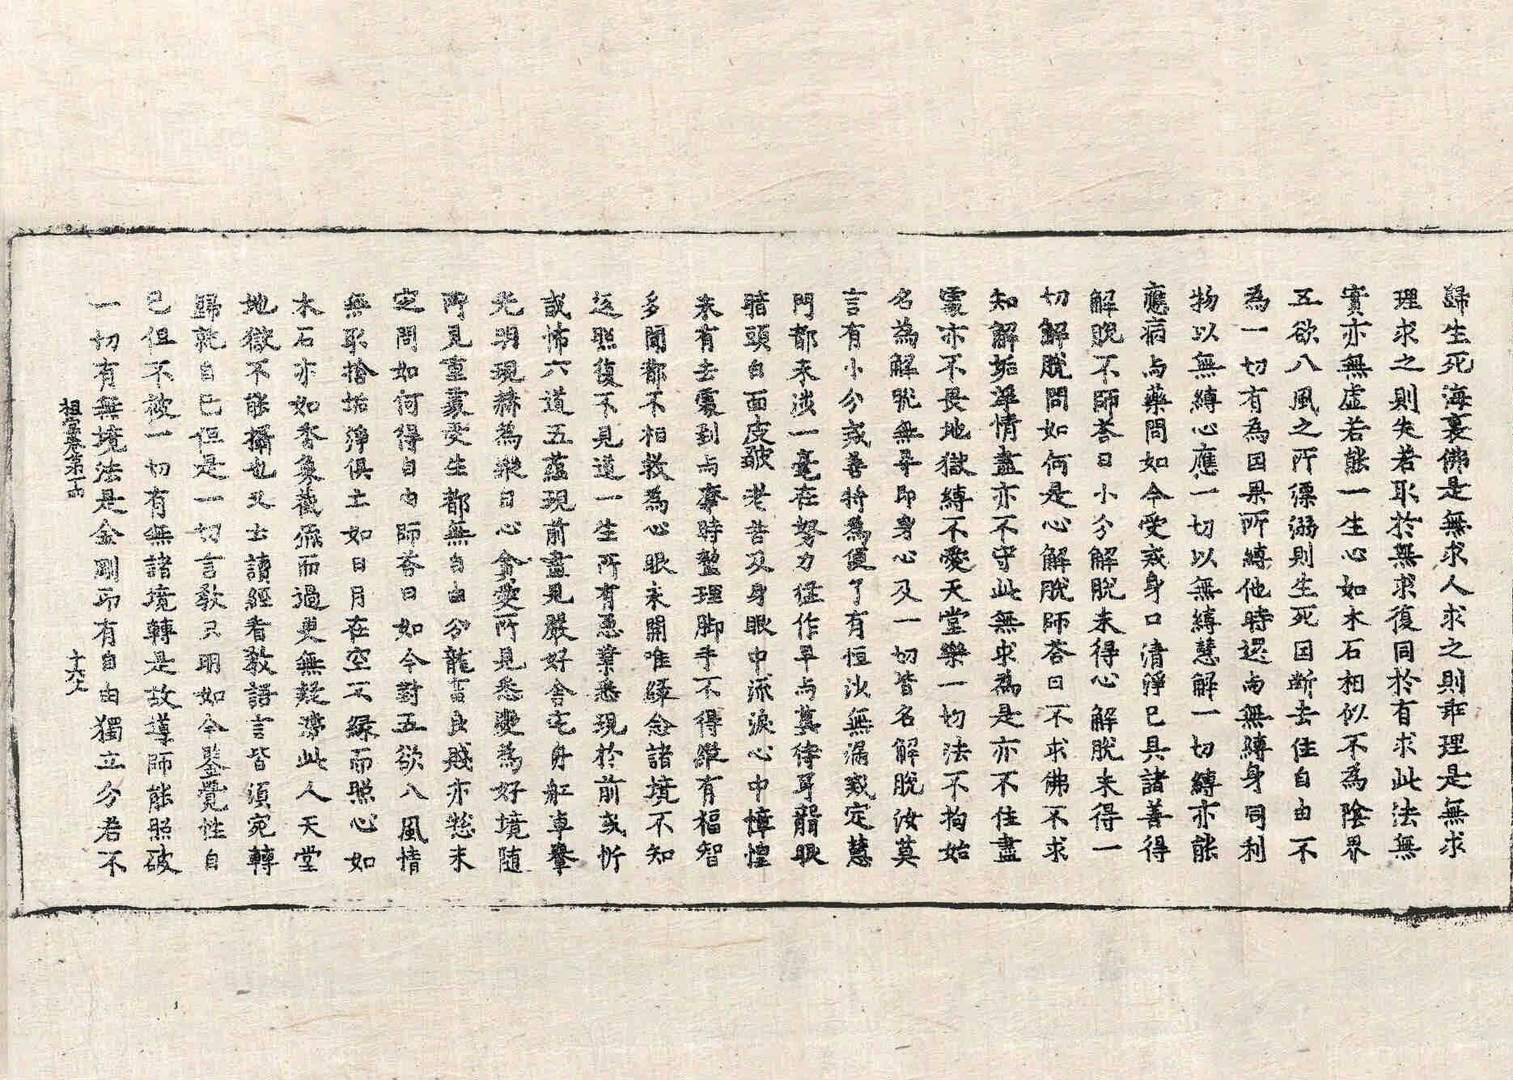 歸生死海裏佛是無求人求之則乖理是無求
理求之則失若取於無求復同於有求此法無
實亦無虛若能一生心如木石相似不為陰界
五欲八風之所漂溺則生死因斷去住自由不
為一切有為因果所縛他時還与無縛身同利
物以無縛心應一切以無縛慧解一切縛亦能
應病与藥問如今受戒身口清淨已具諸善得
解脫不師荅曰小分解脫未得心解脫未得一
切解脫問如何是心解脫師荅曰不求佛不求
知解垢淨情盡亦不守此無求為是亦不住盡
處亦不畏地獄縛不愛天堂樂一切法不拘始
名為解脫無㝵即身心及一切皆名解脫汝莫
言有小分戒善將為便了有恒沙無漏戒定慧
門都未涉一毫在努力猛作早与莫待耳聾眼
暗頭白面皮皺老苦及身眼中流淚心中慞惶
未有去處到与摩時整理脚手不得縱有福智
多聞都不相救為心眼未開唯緣念諸境不知
返照復不見道一生所有惡業悉現於前或忻
或怖六道五蘊現前盡見嚴好舍宅舟舡車轝
光明現赫為縱自心貪愛所見悉變為好境隨
所見重處受生都無自由分龍畜良賤亦惣未
定問如何得自由師荅曰如今對五欲八風情
無取捨垢淨俱亡如日月在空不緣而照心如
木石亦如香象截流而過更無疑滯此人天堂
地獄不能攝也又云讀經看教語言皆須宛轉
歸就自己但是一切言教只明如今鑒覺性自
己但不被一切有無諸境轉是故導師能照破
一切有無境法是金剛即有自由獨立分若不
祖堂卷第十四